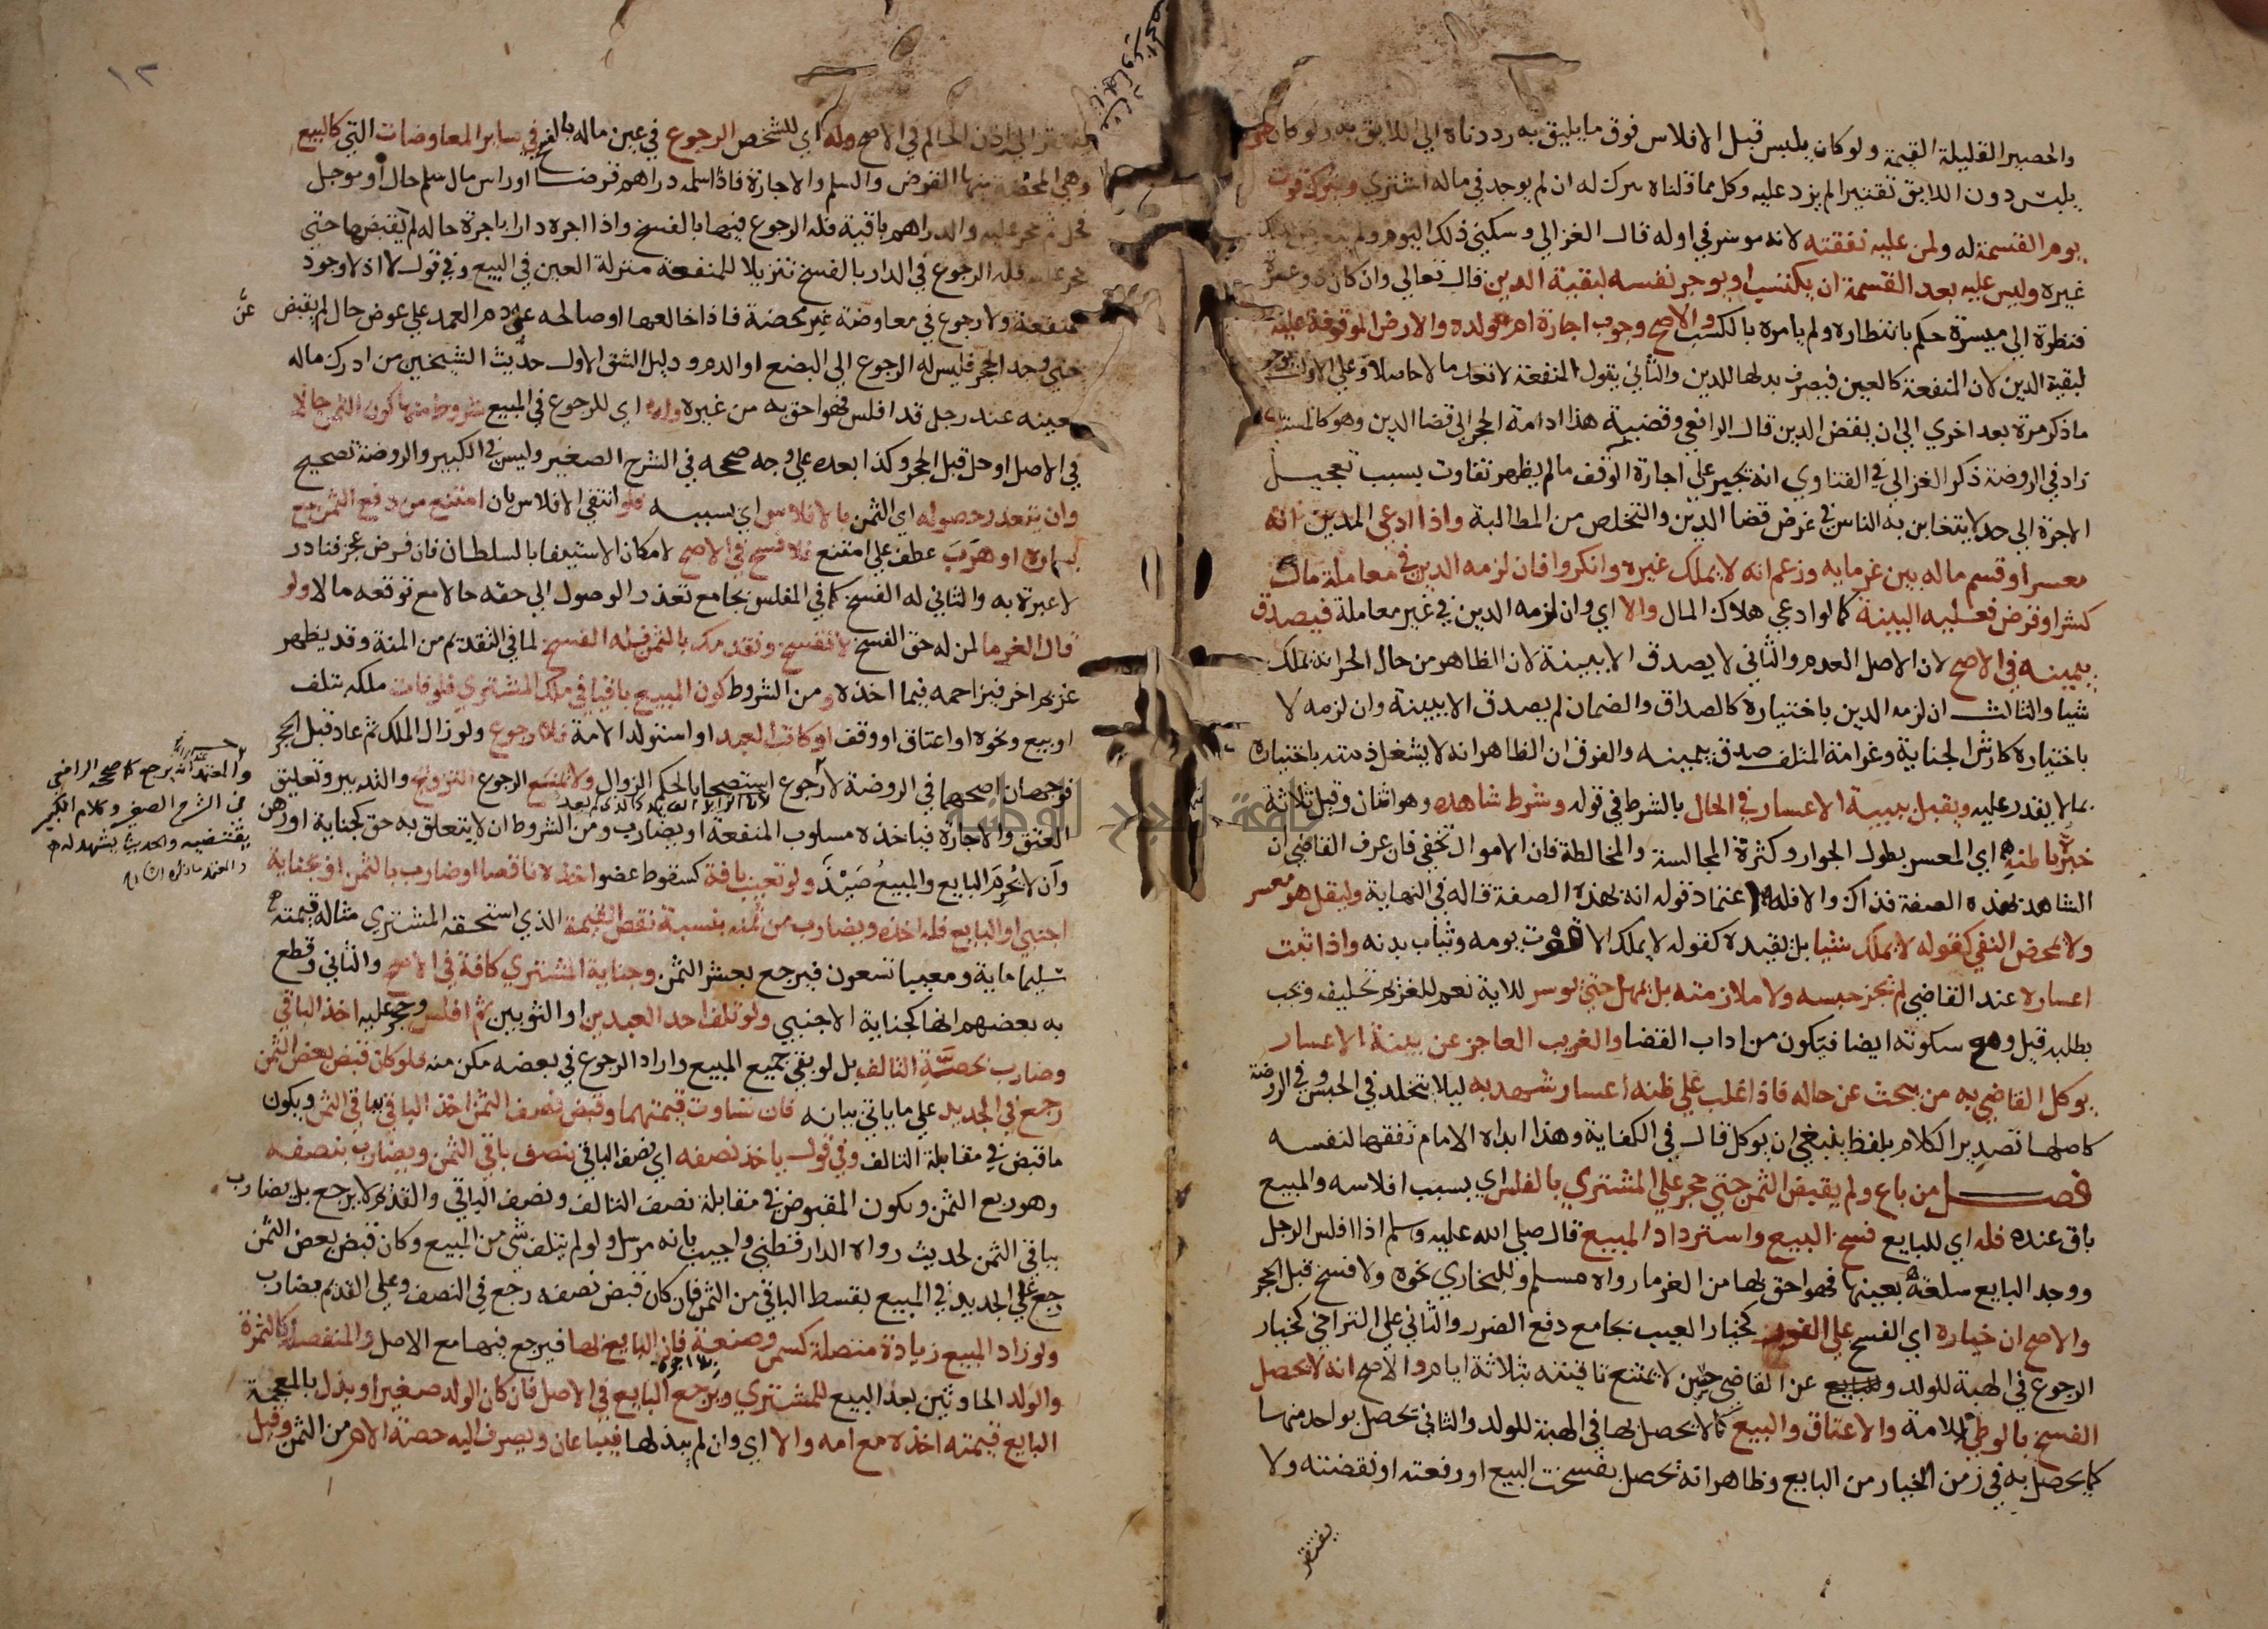 والحصير القليلة القيمة ولو كان يلبس قبل الافلاس فوق ما يليق به رددناه الي اللايق به ولو كان
يلبس دون اللايق تقتيرا لم يزد عليه وكل مما قلناه يترك له ان لم يوجد في ماله اشتري ويترك قوت
يوم القسمة له ولمن عليه نفقته لانه موسر في اوله قال الغزالي وسكني ذلك اليوم ولم يتعرض لذلك
غيره وليس عليه بعد القسمة ان يكتسب او يوجر نفسه لبقية الدين قال تعالي وان كان ذو عسرة
فنظرة الي ميسرة حكم بانتظاره ولم يامره بالكسب والاصح وجوب اجارة ام ولده والارض الموقوفة عليه
لبقية الدين لان المنفعة كالعين فيصرف بدلها للدين والثاني يقول المنفعة لا تعد ما لا حاصلا وعلي الاول يوجر
ما ذكر مرة بعد اخري الي ان يفنى الدين قال الرافعي وقضية هذا ادامة الحجر الي قضا الدين وهو كالمستبعد
زاد في الروضة ذكر الغزالي في الفتاوي انه يجبر علي اجارة الوقف ما لم يظهر تفاوت بسبب تعجيل
الاجرة الي حد لا يتغابن به الناس في غرض قضا الدين والتخلص من المطالبة واذا ادعي المدين انه
معسر او قسم ماله بين غرمايه وزعم انه لا يملك غيره وانكروا فان لزمه الدين في معاملة مال
كشرا او قرض فعليه البينة كما لو ادعي هلاك المال والا اي وان لزمه الدين في غير معاملة فيصدق
بيمينه في الاصح لان الاصل العدم والثاني لا يصدق الا ببينة لان الظاهر من حال الحر انه يملك
شيا والثالث ان لزمه الدين باختياره كالصداق والضمان لم يصدق الا ببينة وان لزمه لا
باختياره كارش الجناية وغرامة المتلف صدق بيمينه والفرق ان الظاهر انه لا يشغل ذمته باختياره
بما لا يقدر عليه ويقبل ببينة الاعسار في الحال بالشرط في قوله وشرط شاهده وهو اثنان وقيل ثلاثة
خبرة باطنه اي المعسر بطول الجوار وكثرة المجالسة والمخالطة فان الاموال تخفي فان عرف القاضي ان
الشاهد بهذه الصفة فذاك والا فله اعتماد قوله انه بهذه الصفة قاله في النهاية وليقل هو معسر
ولا يمحض النفي كقوله لا يملك شيا بل يقيده كقوله لا يملك الا قوت يومه وثياب بدنه واذا ثبت
اعساره عند القاضي لم يجز حبسه ولا ملازمته بل يمهل حتي يوسر للاية نعم للغريم تحليفه ويجب
بطلبه قيل ومع سكوته ايضا فيكون من اداب القضا والغريب العاجز عن بينة الاعسار
يوكل القاضي به من يبحث عن حاله فاذا غلب علي ظنه اعسار شهد به ليلا يتخلد في الحبس وفي الروضة
كاصلها تصدير الكلام بلفظ ينبغي ان يوكل قال في الكفاية وهذا ابداه الامام تفقها لنفسه
فصل من باع ولم يقبض الثمن حتي حجر علي المشتري بالفلس اي بسبب افلاسه والمبيع
باق عنده فله اي للبايع فسخ البيع واسترداد المبيع قال صلي الله عليه وسلم اذا افلس الرجل
ووجد البايع سلعته بعينها فهو احق بها من الغرما رواه مسلم وللبخاري نحوه ولا فسخ قبل الحجر
والاصح ان خياره اي الفسخ علي الفور كخيار العيب بجامع دفع الضرر والثاني علي التراخي كخيار
الرجوع في الهبة للولد عن القاضي حسين لا يمتنع تاقيته بثلاثة ايام والاصح انه لا يحصل
الفسخ بالوطي للامة والاعتاق والبيع كما لا يحصل بها في الهبة للولد والثاني يحصل بواحد منها
كما يحصل به في زمن الخيار من البايع وظاهر انه يحصل بفسخت البيع او رفعته او نقضته ولا
يفتقر
١٢
يفتقر الي اذن الحاكم في الاصح وله اي للشخص الرجوع في عين ماله بالفسخ في ساير المعاوضات التي كالبيع
وهي المحضة منها القرض والسلم والاجارة فاذا سلمه دراهم قرضا او راس مال سلم حال او موجل
فحل ثم حجر عليه والدراهم باقية فله الرجوع فيها بالفسخ واذا اجره دارا باجرة حالة لم يقبضها حتي
حجر عليه فله الرجوع في الدار بالفسخ تنزيلا للمنفعة منزلة العين في البيع وفي قول لا اذ لا وجود
للمنفعة ولا رجوع في معاوضة غير محضة فاذا خالعها او صالحه عن دم العمد علي عوض حال لم يقبض
حتي وجد الحجر فليس له الرجوع الي البضع او الدم ودليل الشق الاول حديث الشيخين من ادرك ماله
بعينه عند رجل قد افلس فهو احق به من غيره وله اي للرجوع في المبيع شروط منها كون الثمن حالا
في الاصل او حل قبل الحجر وكذا بعده علي وجه صححه في الشرح الصغير وليس في الكبير والروضة تصحيح
وان يتعذر حصوله اي الثمن بالافلاس اي بسببه فلو انتفي الافلاس بان امتنع من دفع الثمن مع
يساره او هرب عطف علي امتنع فلا فسخ في الاصح لامكان الاستيفا بالسلطان فان فرض عجز فنادر
لا عبرة به والثاني له الفسخ كما في المفلس بجامع تعذر الوصول الي حقه حالا مع توقعه مالا ولو
قال الغرما لمن له حق الفسخ لا تفسخ ونقدمك بالثمن فله الفسخ لما في التقديم من المنة وقد يظهر
غريم اخر فيزاحمه فيما اخذه ومن الشروط كون المبيع باقيا في ملك المشتري فلو فات ملكه بتلف
او بيع ونحوه او اعتاق او وقف او كاتب العبد او استولد الامة فلا رجوع ولو زال الملك ثم عاد قبل الحجر
فوجهان اصحهما في الروضة لا رجوع استصحابا لحكم الزوال ولا يمنع الرجوع التزويج والتدبير وتعليق
العتق والاجارة فياخذه مسلوب المنفعة او يضارب ومن الشروط ان لا يتعلق به حق كجناية او رهن
وان لا يحرم البايع والمبيع صيد ولو تعيب بافة كسقوط عضو اخذه ناقصا او ضارب بالثمن او بجناية
اجنبي او البايع فله اخذه ويضارب من ثمنه بنسبة نقص القيمة الذي استحقه المشتري مثاله قيمته
سليما ماية ومعيبا تسعون فيرجع بعشر الثمن وجناية المشتري كافة في الاصح والثاني وقطع
به بعضهم انها كجناية الاجنبي ولو تلف احد العبدين او الثوبين ثم افلس وحجر عليه اخذ الباقي
وضارب بحصة التالف بل لو بقي جميع المبيع واراد الرجوع في بعضه مكن منه فلو كان قبض بعض الثمن
رجع في الجديد علي ما ياتي بيانه فان تساوت قيمتهما وقبض نصف الثمن اخذ الباقي بباقي الثمن ويكون
ما قبض في مقابلة التالف وفي قول ياخذ نصفه اي نصف الباقي بنصف باقي الثمن ويضارب بنصفه
وهو ربع الثمن ويكون المقبوض في مقابلة نصف التالف ونصف الباقي والقديم لا يرجع بل يضارب
بباقي الثمن لحديث رواه الدارقطني واجيب بانه مرسل ولو لم يتلف شي من المبيع وكان قبض بعض الثمن
رجع علي الجديد في المبيع بقسط الباقي من الثمن فان كان قبض نصفه رجع في النصف وعلي القديم يضارب
ولو زاد المبيع زيادة متصلة كسمن وصنعة فاز البايع بها فيرجع فيها مع الاصل والمنفصلة كالثمرة
والولد الحادثين بعد البيع للمشتري ويرجع البايع في الاصل فان كان الولد صغيرا وبذل بالمعجمة
البايع قيمته اخذه مع امه والا اي وان لم يبذلها فيباعان ويصرف اليه حصة الام من الثمن وقيل
عن
والمعتمد انه يرجع كما صححه الرافعي
في الشرح الصغير وكلام الكبير
يقتضيه والحديث يشهد له